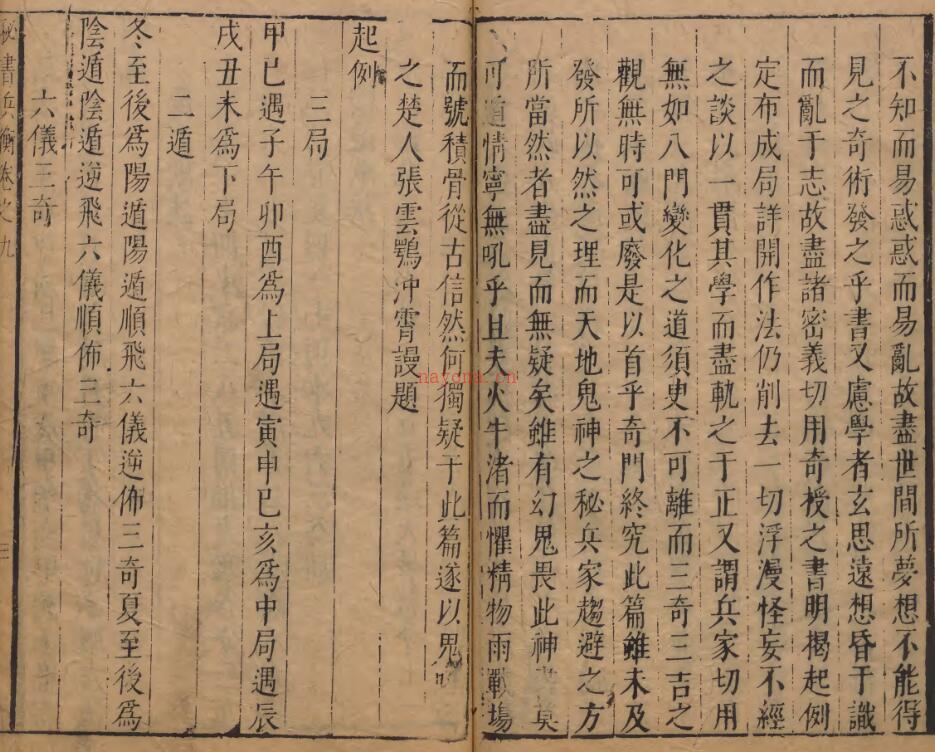 不知而易惑惑而易亂故盡世間所夢想不能得
見之奇術發之乎書又慮學者玄思遠想昏于識
而亂于志故盡諸密義切用奇授之書明揭起例
定布成局詳開作法仍削去一切浮漫怪妄不經
之談以一貫其學而盡軌之于正又謂兵家切用
無如八門變化之道須臾不可離而三奇三吉之
觀無時可或廢是以首乎奇門終究此篇雖未及
發所以然之理而天地鬼神之秘兵家趨避之方
所當然者盡見而無疑矣雖有幻鬼畏此神書莫
可遁情寧無吼乎且夫火牛渚而懼精物雨戰場
而號積骨從古信然何獨疑于此篇遂以鬼
之楚人張雲鶚沖霄謾題
起例
三局
甲己遇子午卯酉為上局遇寅申巳亥為中局遇辰
戌丑未為下局
二遁
冬至後為陽遁陽遁順飛六儀逆佈三奇夏至後為
陰遁陰遁逆飛六儀順佈三奇
六儀三奇
秘書兵衡卷之九
三
nayona.cn